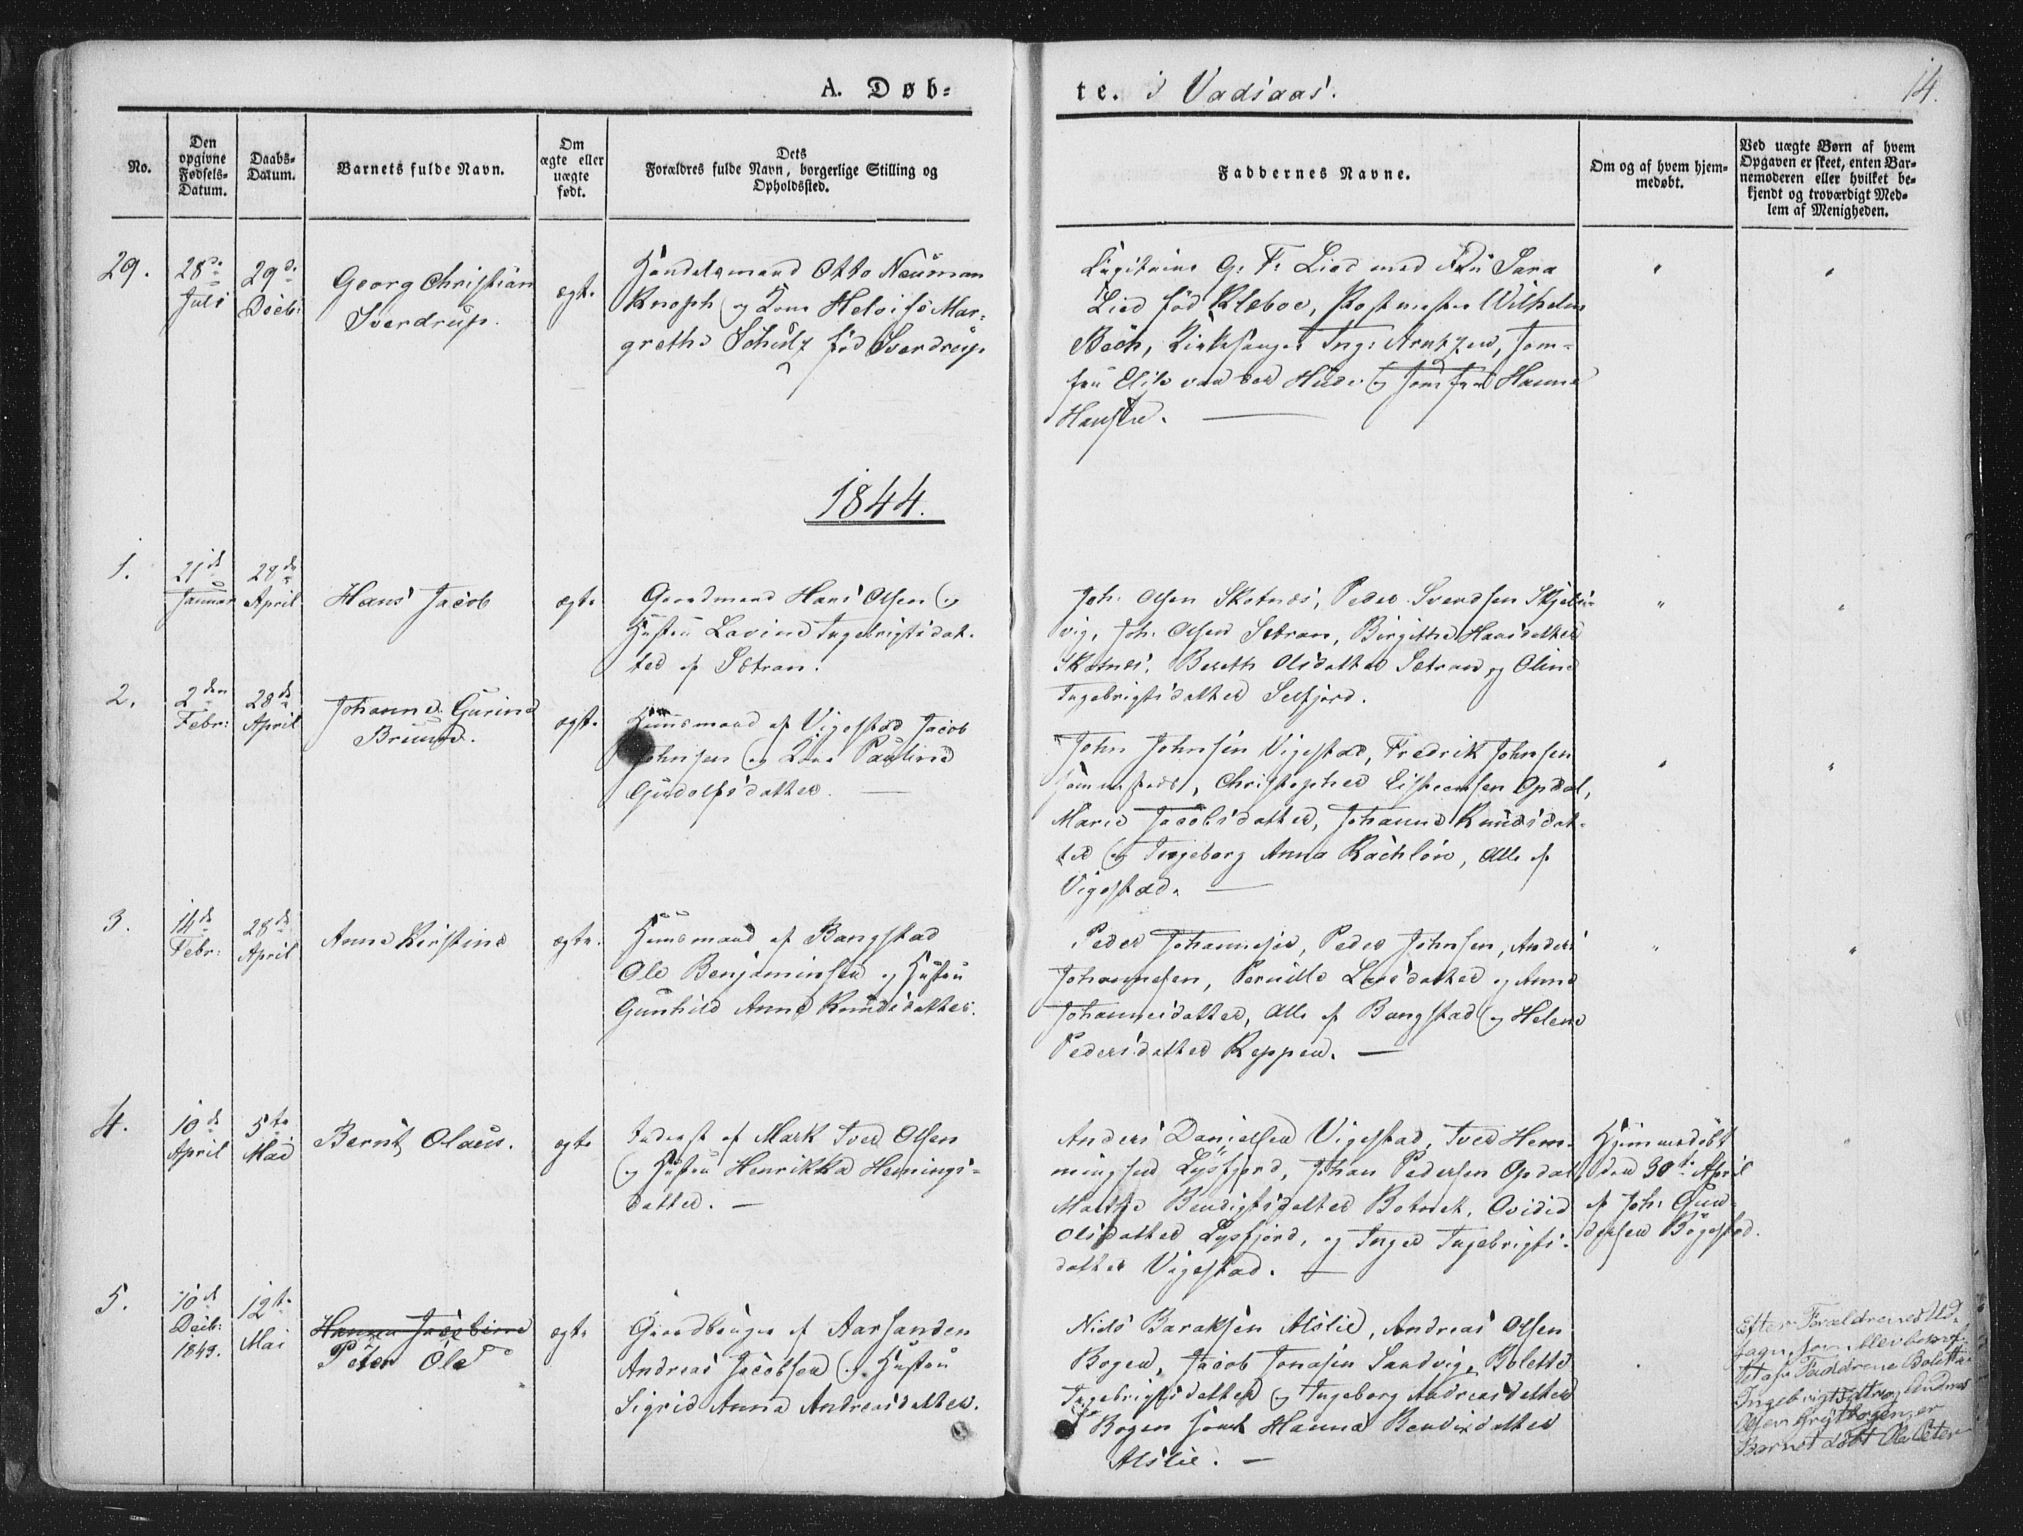 A. Døb=
te. i Vadsaas.
14.
No.
Den opgivne Fødsels-Datum.
Daabs-Datum.
Barnets fulde Navn.
Om ægte eller uægte født.
Dets
Forældres fulde Navn, borgerlige Stilling og
Opholdssted.
Faddernes Navne.
Om og af hvem hjem-
medøbt.
Ved uægte Børn af hvem
Opgaven er skeet, enten Bar-
nemoderen eller hvilket be-
kjendt og troværdigt Med-
lem af Menigheden.
29.
28de
Juli
29de
Decbr
Georg Christian
Sverdrup.
ægte
Handelsmand Otto Neuman
Knoph og Kone Heloise Mar-
grethe Schulz fød Sverdrup
G. F. Lied med Fru Sara
Lied fød Klæboe, Postmester Wilhelm
Bech, Kirkesanger Ing: Arntzen, Jom-
fru Elise van der Hude og Jomfru Hanna
Hansen.
1844.
1.
21de
Januar
28de
April
Hans Jacob
ægte
Gaardmand Hans Olsen og
Hustru Lovine Ingebrigtsdat-
ter af Sætran.
Joh. Olsen Skotnes, Peder Svendsen Skjels-
vig, Joh. Olsen Sætran, Birgitha Hansdatter
Skotnes, Bereth Olsdatter Sætran og Oline
Ingebrigtsdatter Selfjord.
2.
2den
Febr:
28de
April
Johanna Gurine
Bruun.
ægte
Huusmand af Vigestad Jacob
Johnsen og Kone Pauline
Gudolfsdatter.
John Johnsen Vigestad, Fredrik Johnsen
, Christopher Opdal,
Marie Jacobsdatter, Johanna Knudsdat-
ter og Ingeborg Anna, Alle af
Vigestad.
3.
14de
Febr:
28de
April
Anna Kirstine
ægte.
Huusmand af Bangstad
Ole Benjaminsen og Hustru
Gunhild Anna Knudsdatter.
Peder Johannesen, Peder Johnsen, Anders
Johannesen, Pernille Larsdatter og Anne
Johannesdatter, Alle af Bangstad og Helene
Pedersdatter Reppen.
4.
10de
April
5te
Mai
Bernt Olaus.
ægte
Inderst af Mark Iver Olsen
og Hustru Henrikka Hemings-
datter.
Anders Danielsen Vigestad, Iver Hem-
mingsen Lysfjord, Johan Pedersen Opdal,
Marthe Bendigtsdatter Botnet, Ovidia
Olsdatter Lysfjord, og Inger Ingebrigts-
datter Vigestad.
Hjemmedøbt
den 30te April
af Joh. Gun-
dersen Bøgestad.
5.
10de
Decbr:
1843.
12te
Mai
Hanna Jacobine
Peter Ole
ægte
Gaardbruger af Aarsanden
Andreas Jacobsen og Hustru
Sigrid Anna Andreasdatter.
Niels Baraksen Alslie, Andreas Olsen
Bogen, Jacob Jonasen Sandvig, Bolette
Ingebrigtsdatter og Ingeborg Andreasdatter
Bogen samt Hanna Bendixdatter
Alslie.
Efter Forældrenes Ud-
sagn, som blev bekræf-
tet af Fadderne Bolette
Ingebrigtsdtr og Andreas
Olsen Grytbogen er
Barnet døbt Ole Peter